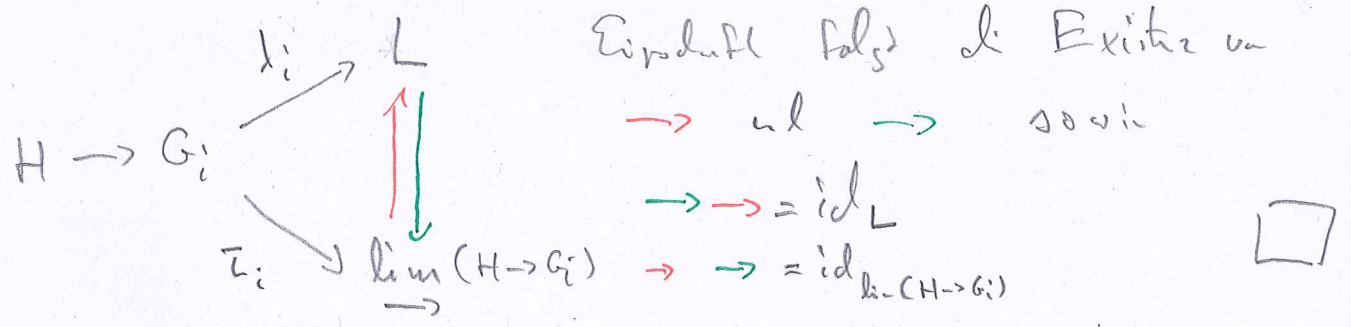 λ_i L Eigenschaft folgt die Existenz von
→ und → sowie
H → G_i
→ → = id_L
τ_i lim (H→G_i) → → = id_{lim(H→G_i)}
→